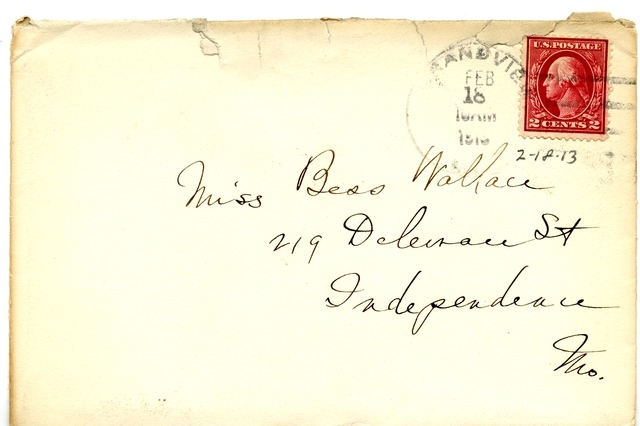 U.S. POSTAGE
2 CENTS 2
FEB
18
10AM
2-18-13
Miss Bess Wallace
219 Delaware St
Independence
Mo.